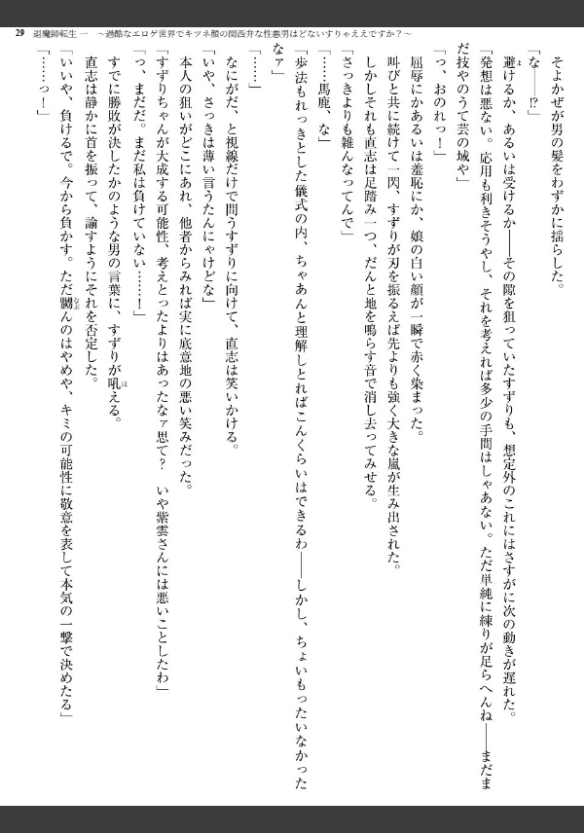 29 退魔師転生 一 ～過酷なエロゲ世界でキツネ顔の関西弁な性悪男はどないすりゃええですか？～
そよかぜが男の髪をわずかに揺らした。
「な――⁉」
避けるか、あるいは受けるか――その隙を狙っていたすずりも、想定外のこれにはさすがに次の動きが遅れた。
「発想は悪ない。応用も利きそうやし、それを考えれば多少の手間はしゃあない。ただ単純に練りが足らへんね――まだま
だ技やのうて芸の域や」
「っ、おのれっ！」
屈辱にかあるいは羞恥にか、娘の白い顔が一瞬で赤く染まった。
叫びと共に続けて一閃、すずりが刃を振るえば先よりも強く大きな嵐が生み出された。
しかしそれも直志は足踏み一つ、だんと地を鳴らす音で消し去ってみせる。
「さっきよりも雑んなってんで」
「……馬鹿、な」
「歩法もれっきとした儀式の内、ちゃあんと理解しとればこんくらいはできるわ――しかし、ちょいもったいなかった
なァ」
「……」
なにがだ、と視線だけで問うすずりに向けて、直志は笑いかける。
「いや、さっきは薄い言うたんにゃけどな」
本人の狙いがどこにあれ、他者からみれば実に底意地の悪い笑みだった。
「すずりちゃんが大成する可能性、考えとったよりはあったなァ思て？　いや紫雲さんには悪いことしたわ」
「っ、まだだ。まだ私は負けていない……！」
すでに勝敗が決したかのような男の言葉に、すずりが吼える。
直志は静かに首を振って、諭すようにそれを否定した。
「いいや、負けるで。今から負かす。ただ嬲んのはやめや、キミの可能性に敬意を表して本気の一撃で決めたる」
「……っ！」